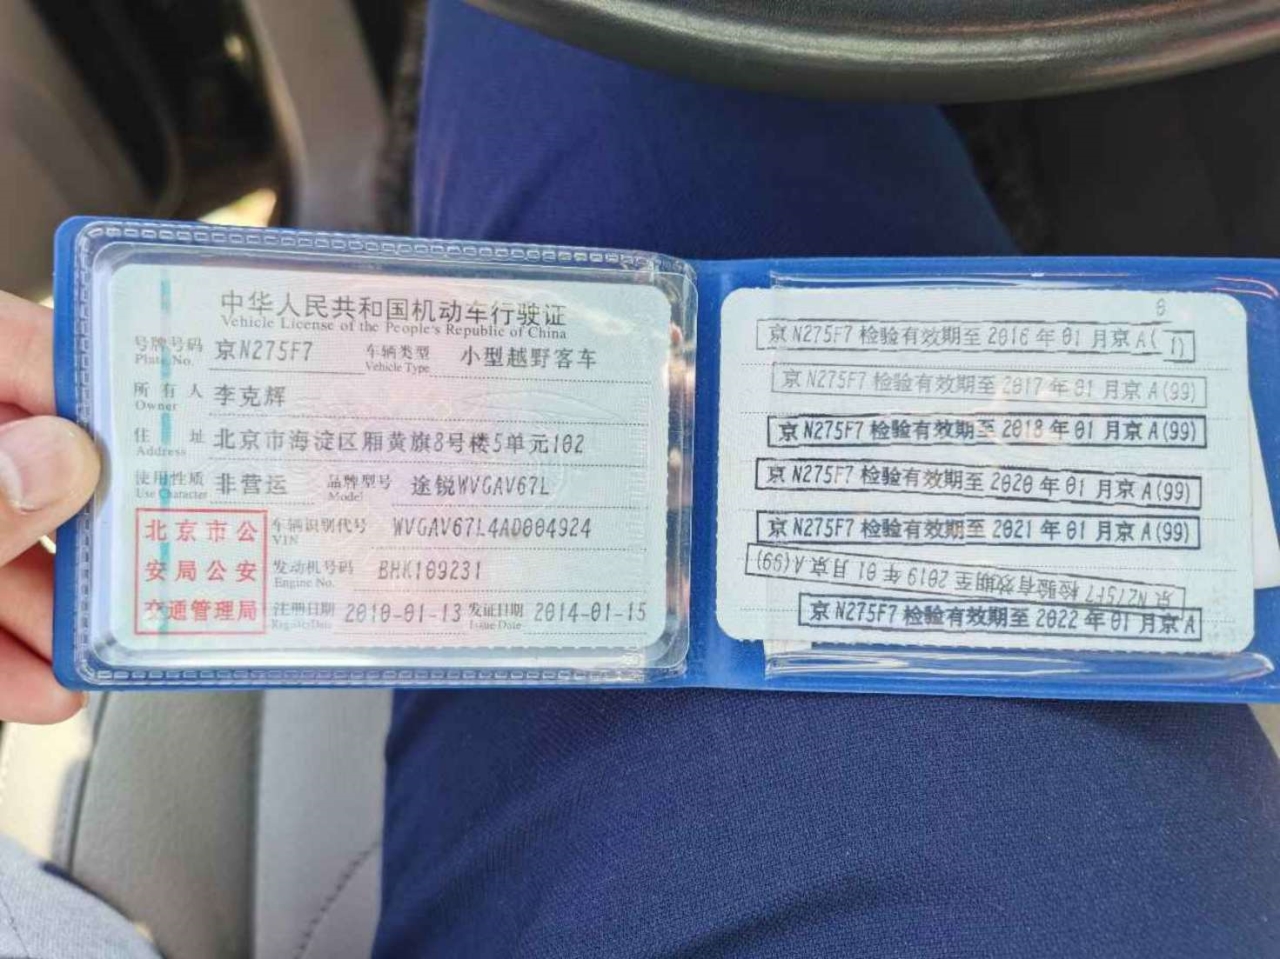 中华人民共和国机动车行驶证
Vehicle License of the People's Republic of China
号牌号码 京N275F7 车辆类型 小型越野客车
Plate No. Vehicle Type
所有人 李克辉
Owner
住址 北京市海淀区厢黄旗8号楼5单元102
Address
使用性质 非营运 品牌型号 途锐WVGAV67L
Use Character Model
北京市公
安局公安
交通管理局
车辆识别代号 WVGAV67L4AD004924
VIN
发动机号码 BHK109231
Engine No.
注册日期 2010-01-13 发证日期 2014-01-15
Register Date Issue Date
京N275F7 检验有效期至 2016 年 01 月京 A(
京N275F7 检验有效期至 2017 年 01 月京 A(99)
京N275F7 检验有效期至 2018 年 01 月京 A(99)
京N275F7 检验有效期至 2020 年 01 月京 A(99)
京N275F7 检验有效期至 2021 年 01 月京 A(99)
京N275F7 检验有效期至 2019 年 01 月京 A(99)
京N275F7 检验有效期至 2022 年 01 月京 A